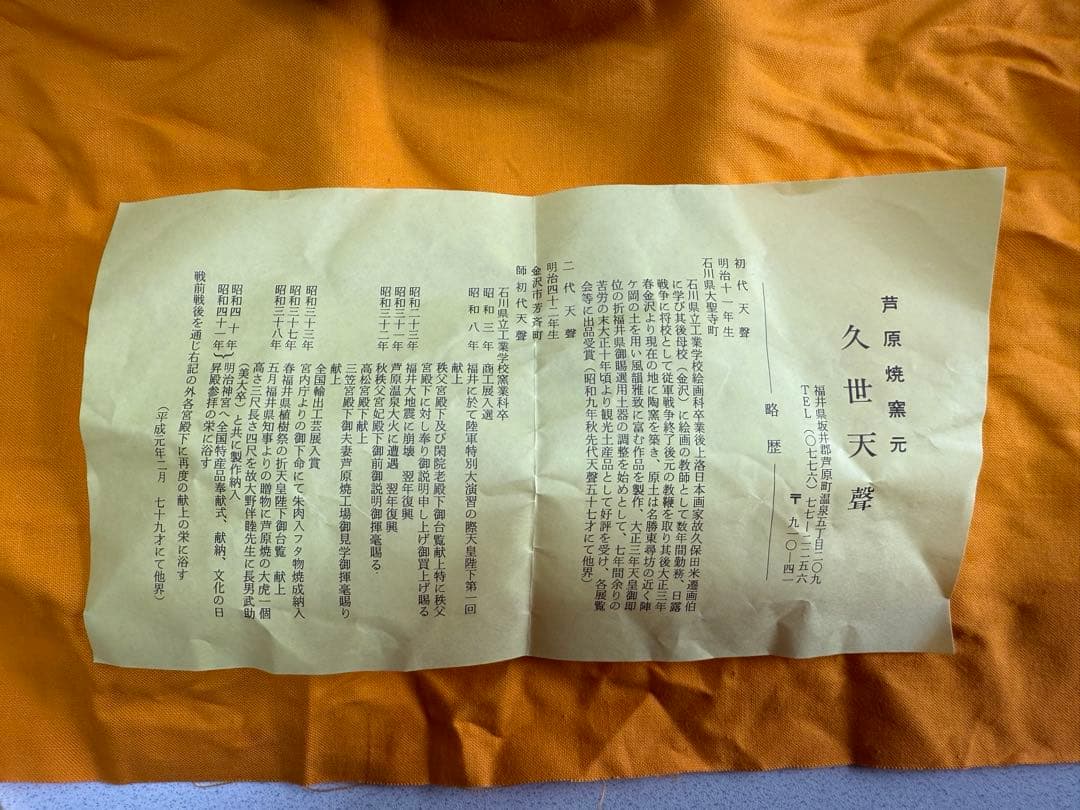 芦原焼窯元
久世天聲
福井県坂井郡芦原町温泉五丁目二〇九
TEL(〇七七六)七七―二二五六
〒九一〇―四一
略歴
初代天聲
明治十一年生
石川県大聖寺町
石川県立工業学校絵画科卒業後上洛日本画家故久保田米遷画伯
に学び其後母校(金沢)に絵画の教師として数年間勤務、日露
戦争に将校として従軍戦争終了後元の教鞭を取り其後大正三年
春金沢より現在の地に陶窯を築き、原土は名勝東尋坊の近く陣
ケ岡の土を用い風韻雅致に富む作品を製作、大正三年天皇御即
位の折福井県御賜選用土器の調整を始めとして、七年間余りの
苦労の末大正十年頃より観光土産品として好評を受け、各展覧
会等に出品受賞(昭和九年秋先代天聲五十七才にて他界)
二代天聲
明治四十二年生
金沢市芳斉町
師初代天聲
石川県立工業学校窯業科卒
昭和三年 商工展入選
昭和八年 福井に於て陸軍特別大演習の際天皇陛下第一回
献上
秩父宮殿下及び閑院老殿下御台覧献上特に秩父
宮殿下に対し奉り御説明申し上げ御買上げ賜る
昭和二十三年 福井大地震に崩壊 翌年復興
昭和三十一年 芦原温泉大火に遭遇 翌年復興
昭和三十二年 秋秩父宮妃殿下御前御説明御揮毫賜る
高松宮殿下献上
三笠宮殿下御夫妻芦原焼工場御見学御揮毫賜り
献上
全国輸出工芸展入賞
昭和三十三年 宮内庁よりの御下命にて朱肉入フタ物焼成納入
昭和三十七年 春福井県植樹祭の折天皇陛下御台覧 献上
昭和三十八年 五月福井県知事よりの贈物に芦原焼の大虎一個
高さ三尺長さ四尺を故大野伴睦先生に長男武助
(美大卒)と共に製作納入
昭和四十年
昭和四十一年}明治神宮へ全国特産品奉献式、献納、文化の日
昇殿参拝の栄に浴す
戦前戦後を通じ右記の外各宮殿下に再度の献上の栄に浴す
(平成元年二月 七十九才にて他界)